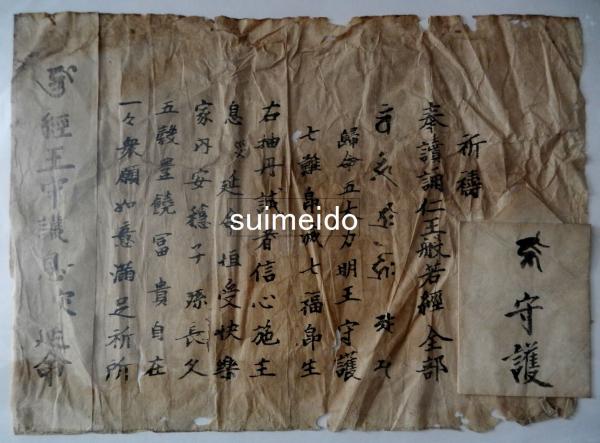 守護
祈禱
奉讀誦仁王般若經全部
歸命五大力明王守護
七難即滅七福即生
右抽丹誠者信心施主
息災延命恒受快樂
家内安穩子孫長久
五穀豊饒冨貴自在
一々衆願如意滿足祈所
經王守護息災延命
suimeido